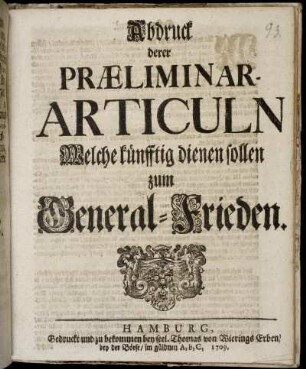 93.
Abdruck
derer
PRÆLIMINAR-
ARTICULN
Welche künfftig dienen sollen
zum
General-Frieden.
HAMBURG,
Gedruckt und zu bekommen bey seel. Thomas von Wierings Erben/
bey der Börse/ im güldnen A, B, C, 1709.